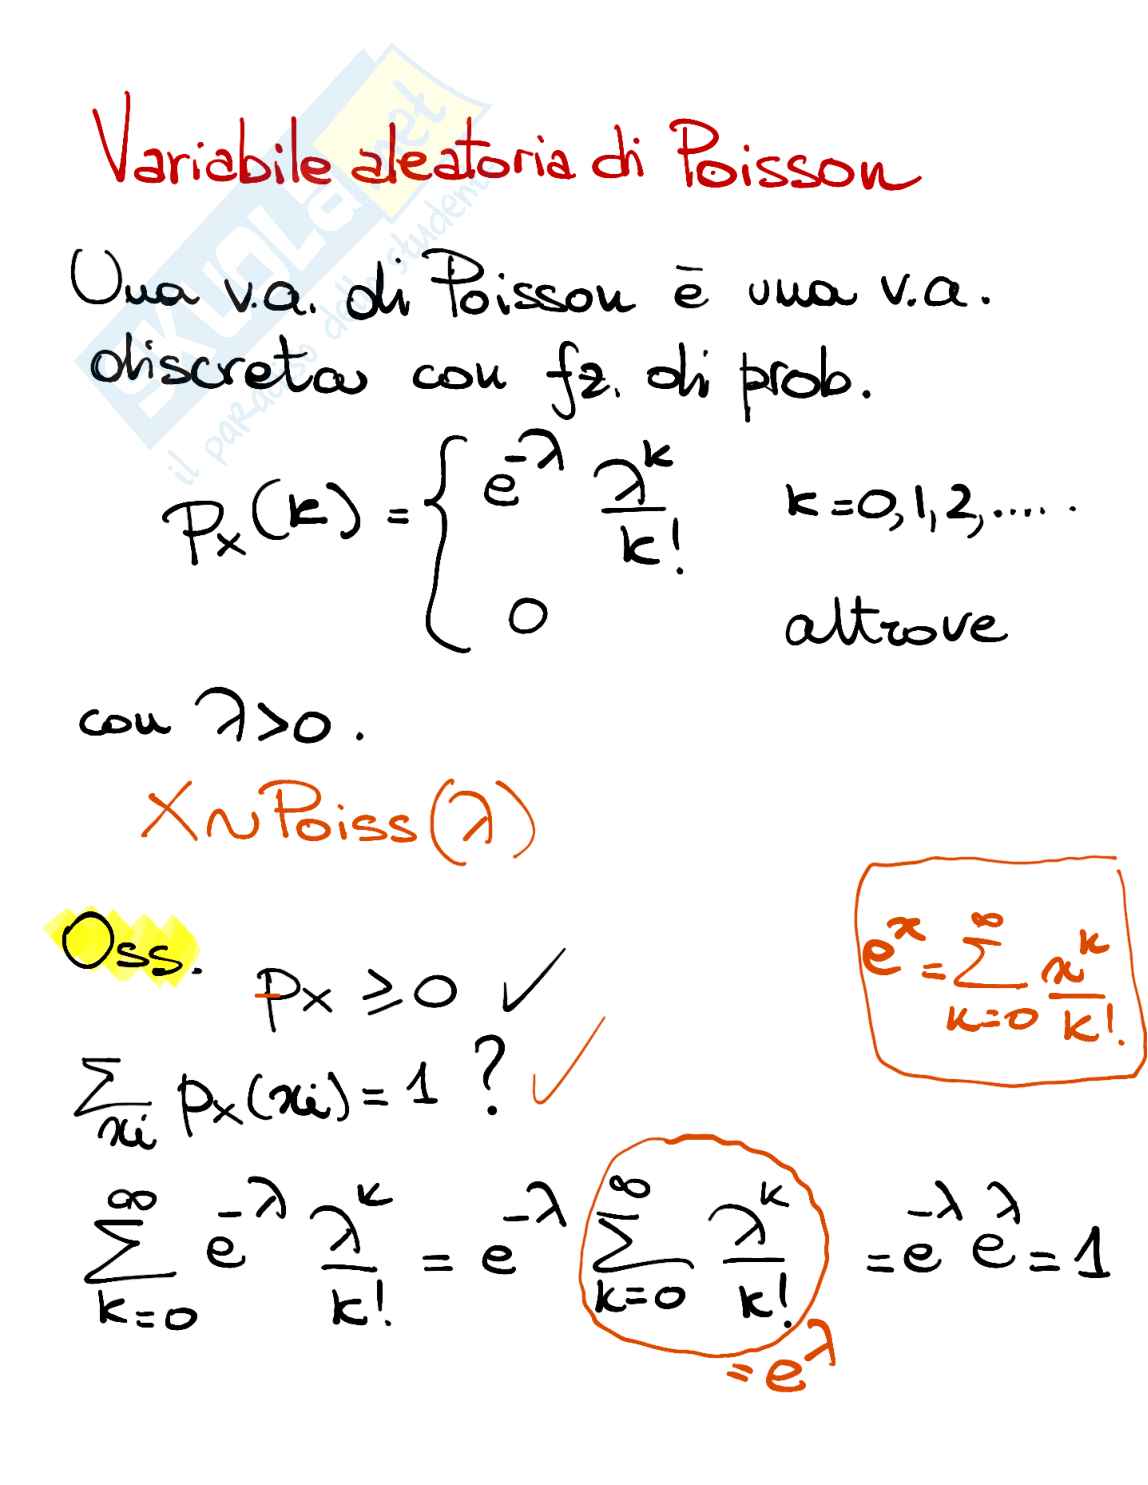 Variabile aleatoria di Poisson
Una v.a. di Poisson è una v.a.
discreta con fz. di prob.
p_X(k) = { e^{-λ} λ^k / k!   k=0,1,2,.....
0   altrove
con λ>0.
X∼Poiss(λ)
Oss. p_X ≥ 0 ✓
e^x = ∑_{k=0}^{∞} x^k / k!.
∑_{xi} p_X(xi) = 1 ? ✓
∑_{k=0}^{∞} e^{-λ} λ^k / k! = e^{-λ} ∑_{k=0}^{∞} λ^k / k! = e^{-λ} e^{λ} = 1
= e^λ
SKUOLA.net
il paradiso dello studente